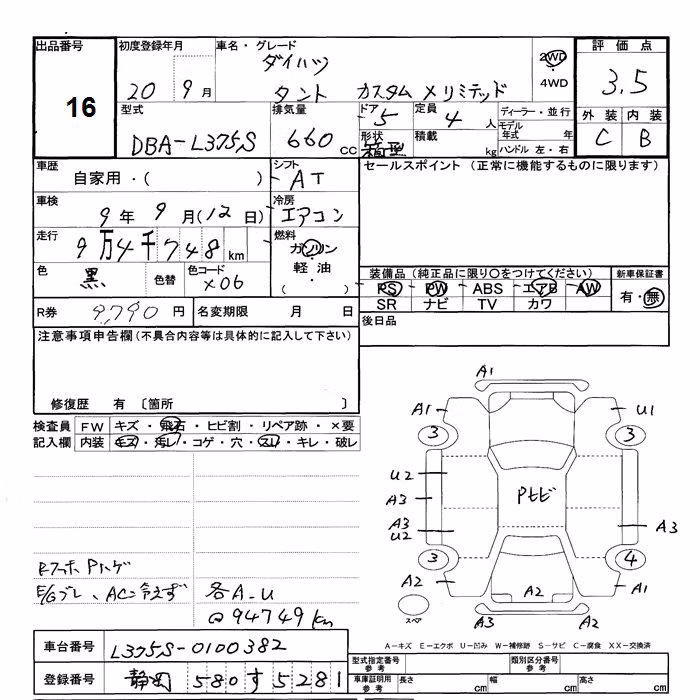 出品番号
16
初度登録年月
20 9 月
車名・グレード
ダイハツ
タント カスタム メリミテッド
2WD
4WD
評価点
3.5
外装 内装
C B
型式
DBA-L375S
排気量
660 cc
ドア
5
形状
箱型
定員
4 人
積載
kg
ディーラー・並行
モデル年式 年
ハンドル 左・右
車歴
自家用・( )
シフト
AT
セールスポイント (正常に機能するものに限ります)
車検
9 年 9 月(12 日)
冷房
エアコン
走行
9万4千748 km
燃料
ガソリン
・
軽油
( )
色
黒
色替
色コード
X06
装備品(純正品に限り○をつけてください)
PS PW ABS エアB AW
SR ナビ TV カワ
新車保証書
有・無
R券
9,790 円
名変期限 月 日
後日品
注意事項申告欄(不具合内容等は具体的に記入して下さい)
修復歴 有 〔箇所 〕
検査員 FW キズ・飛石・ヒビ割・リペア跡・×要
記入欄 内装 キズ・汚レ・コゲ・穴・スレ・キレ・破レ
E/Gブレ、ACご冷えず
各A-U
@94749km
A1
A1
U1
3
3
U2
A3
A3
U2
Pヒビ
A3
3
4
A2
A2
A1
スペア
A3
A2
A-キズ E-エクボ U-凹み W-補修跡 S-サビ C-腐食 XX-交換済
車台番号
L375S-0100382
登録番号
静岡 580 す 5281
型式指定番号
参考
類別区分番号
参考
車庫証明用
参考
長さ cm
幅 cm
高さ cm